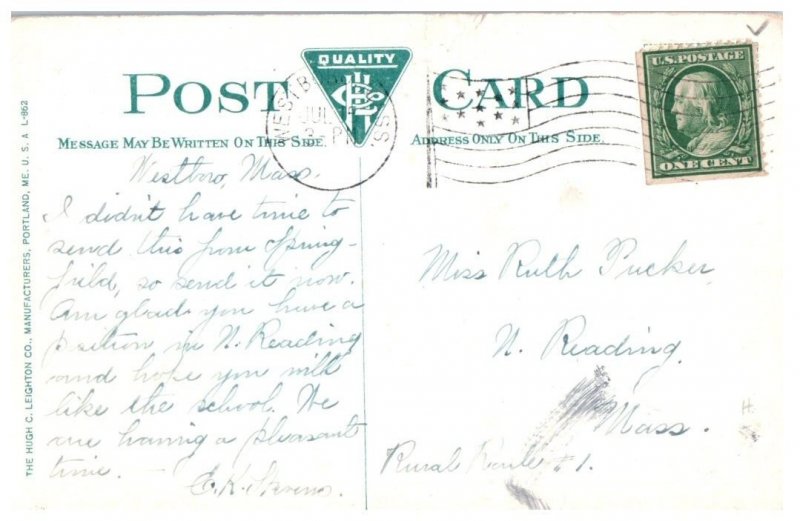 POST CARD
QUALITY
MESSAGE MAY BE WRITTEN ON THIS SIDE.
ADDRESS ONLY ON THIS SIDE.
U.S. POSTAGE
ONE CENT
JUL
THE HUGH C. LEIGHTON CO., MANUFACTURERS, PORTLAND, ME. U. S. A L-852
Westboro, Mass.
I didn't have time to
send this from Spring-
field, so send it now.
Am glad you have a
position in N. Reading
and hope you will
like the school. We
are having a pleasant
time. —
E. K. Stevens.
Miss Ruth Pucker,
N. Reading,
Mass.
Rural Route #1.
H.